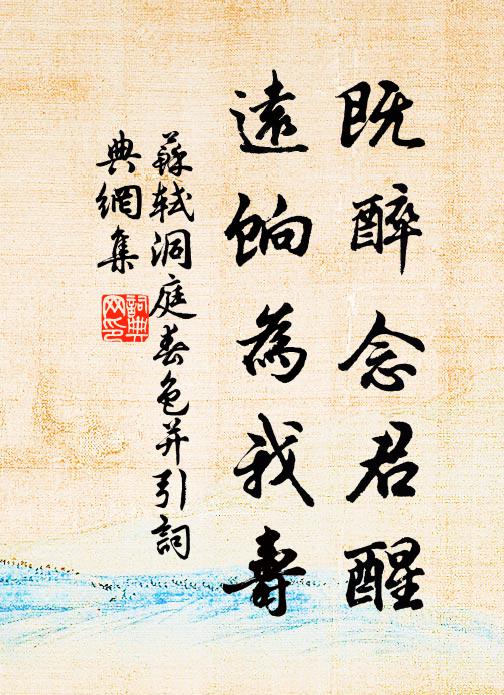 既醉念君醒
遠餉為我壽
蘇軾洞庭春色并引詞
典網集
詞典网印